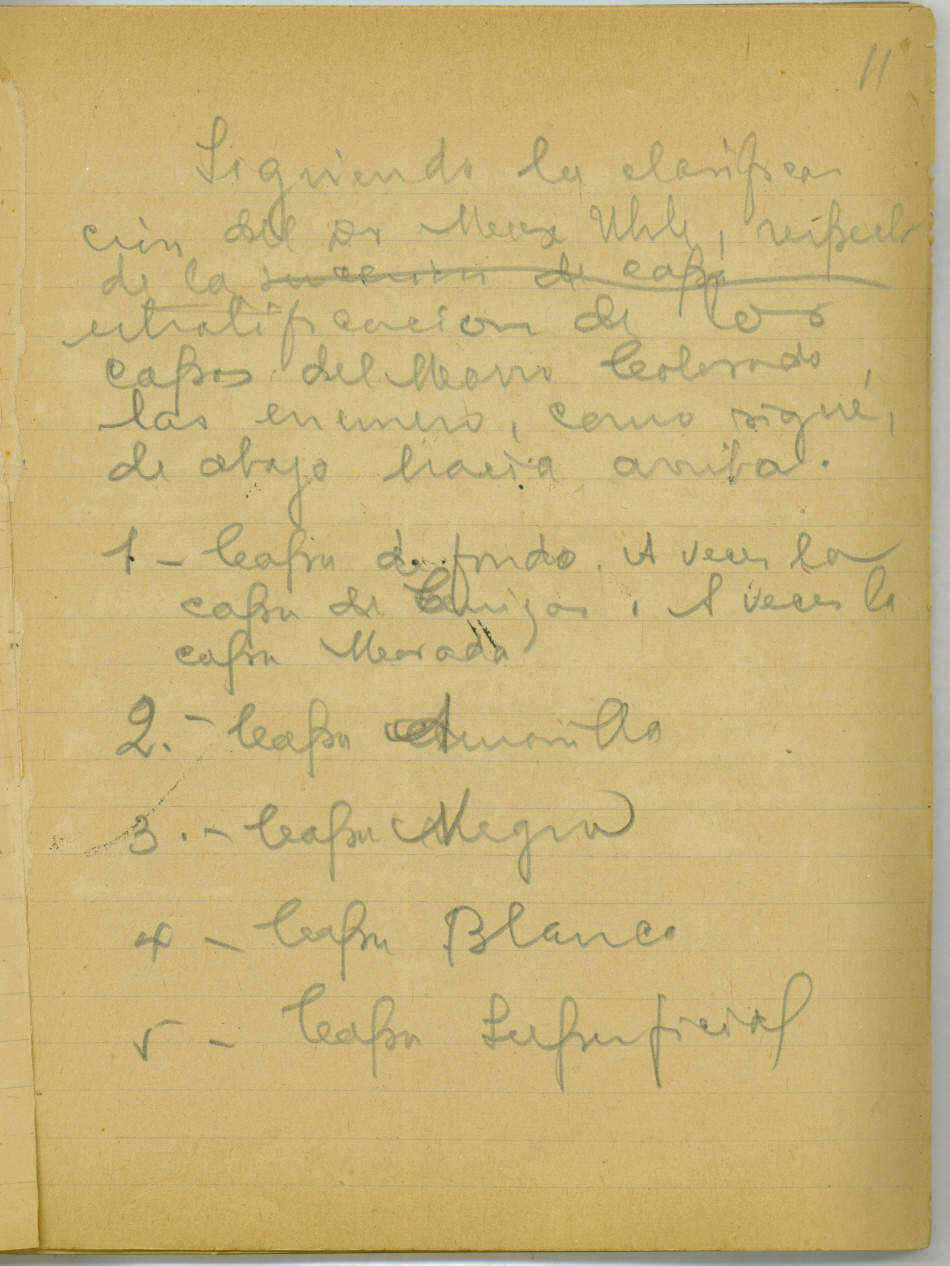 11
Siguiendo la clasifica
cion del Dr Max Uhle, respecto
de la sucesion de capa
estratificacion de los
capas del Morro Colorado,
las enumero, como sigue,
de abajo hacia arriba.
1 - Capa de fondo. A veces la
capa de Cenizas. A veces la
capa Morada
2. - Capa Amarilla
3. - Capa Negra
4 - Capa Blanca
5 - Capa Superficial